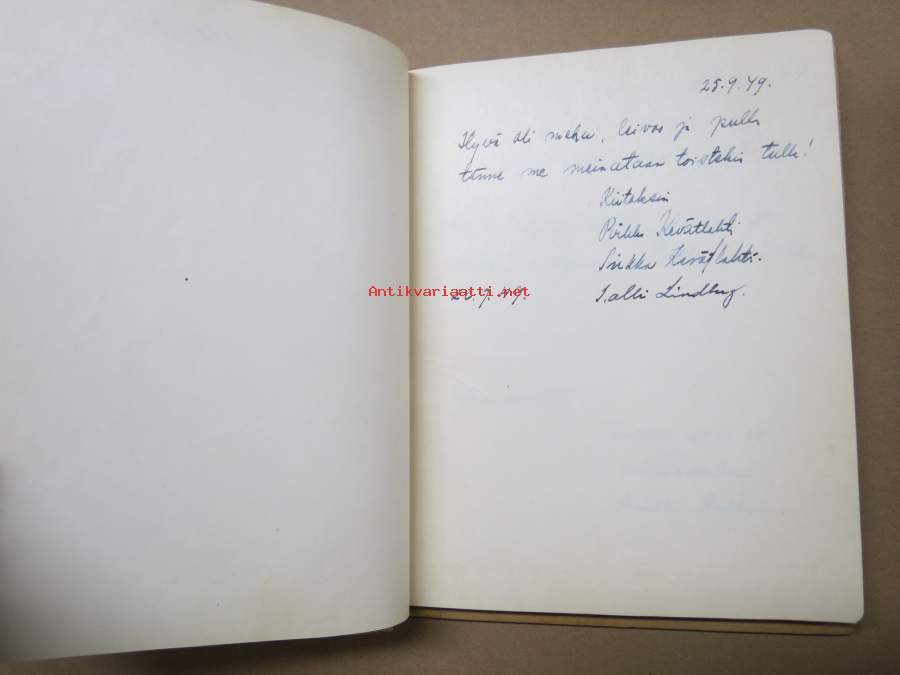 25.9.49.
Hyvä oli mehu, leivos ja pulla
tänne me meinataan toistekin tulla!
Kiitoksin
Pirkko Kevätlahti
Sirkka Kevätlahti.
Antikvariaatti.net
49. Salli Lindberg.